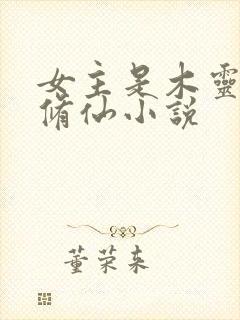 女主是木靈
脩仙小説
董荣来